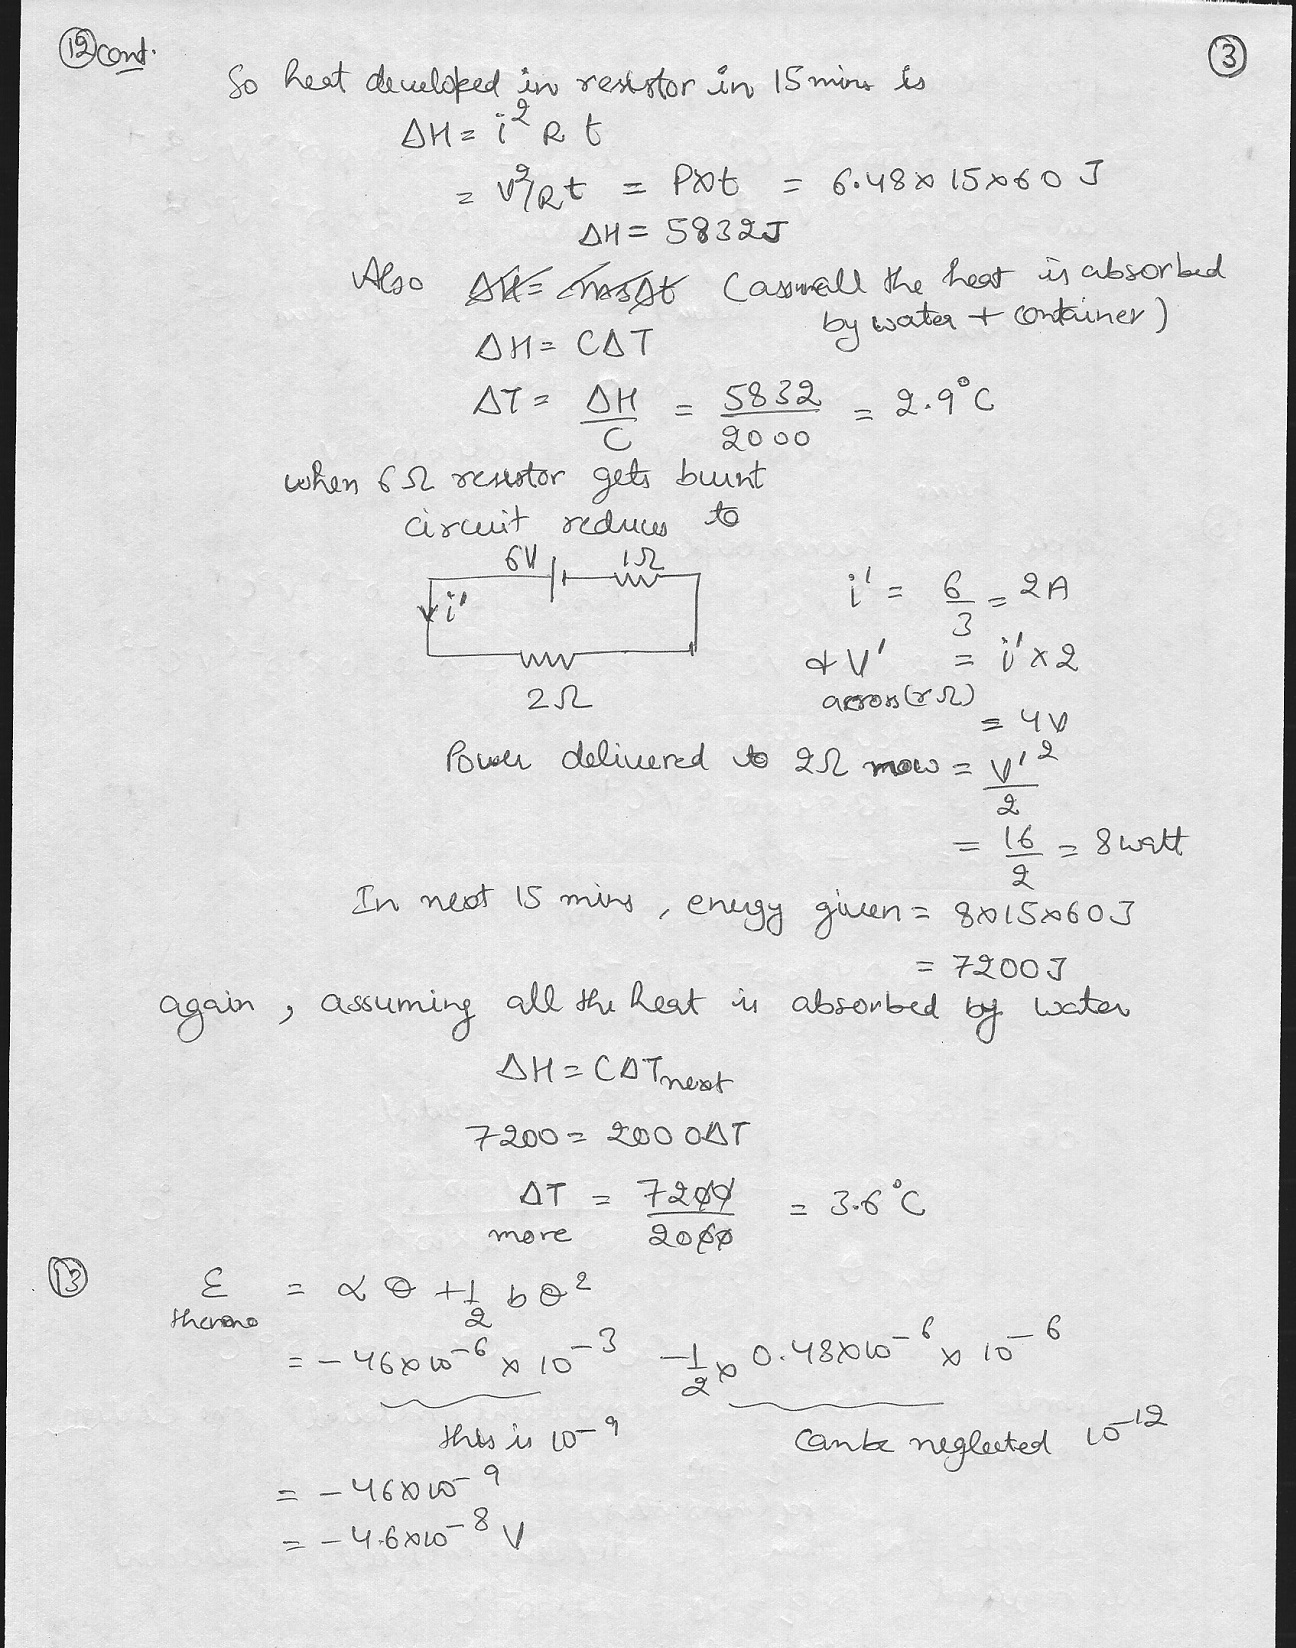 12 cont.
3
So heat developed in resistor in 15 mins is
ΔH = i² R t
= V²/R t = P×t = 6.48 × 15 × 60 J
ΔH = 5832 J
Also (assume all the heat is absorbed
by water + container)
ΔH = CΔT
ΔT = ΔH/C = 5832/2000 = 2.9°C
when 6Ω resistor gets burnt
circuit reduces to
6V 1Ω
i'
2Ω
i' = 6/3 = 2A
& V' = i' × 2
across (r Ω)
= 4V
Power delivered to 2Ω now = V'²/2
= 16/2 = 8 watt
In next 15 mins, energy given = 8×15×60 J
= 7200 J
again, assuming all the heat is absorbed by water
ΔH = CΔT next
7200 = 2000ΔT
ΔT more = 7200/2000 = 3.6°C
13
ε thermo = α θ + 1/2 b θ²
= - 46×10⁻⁶ × 10⁻³ - 1/2 × 0.48×10⁻⁶ × 10⁻⁶
this is 10⁻⁹ can be neglected 10⁻¹²
= - 46×10⁻⁹
= - 4.6×10⁻⁸ V